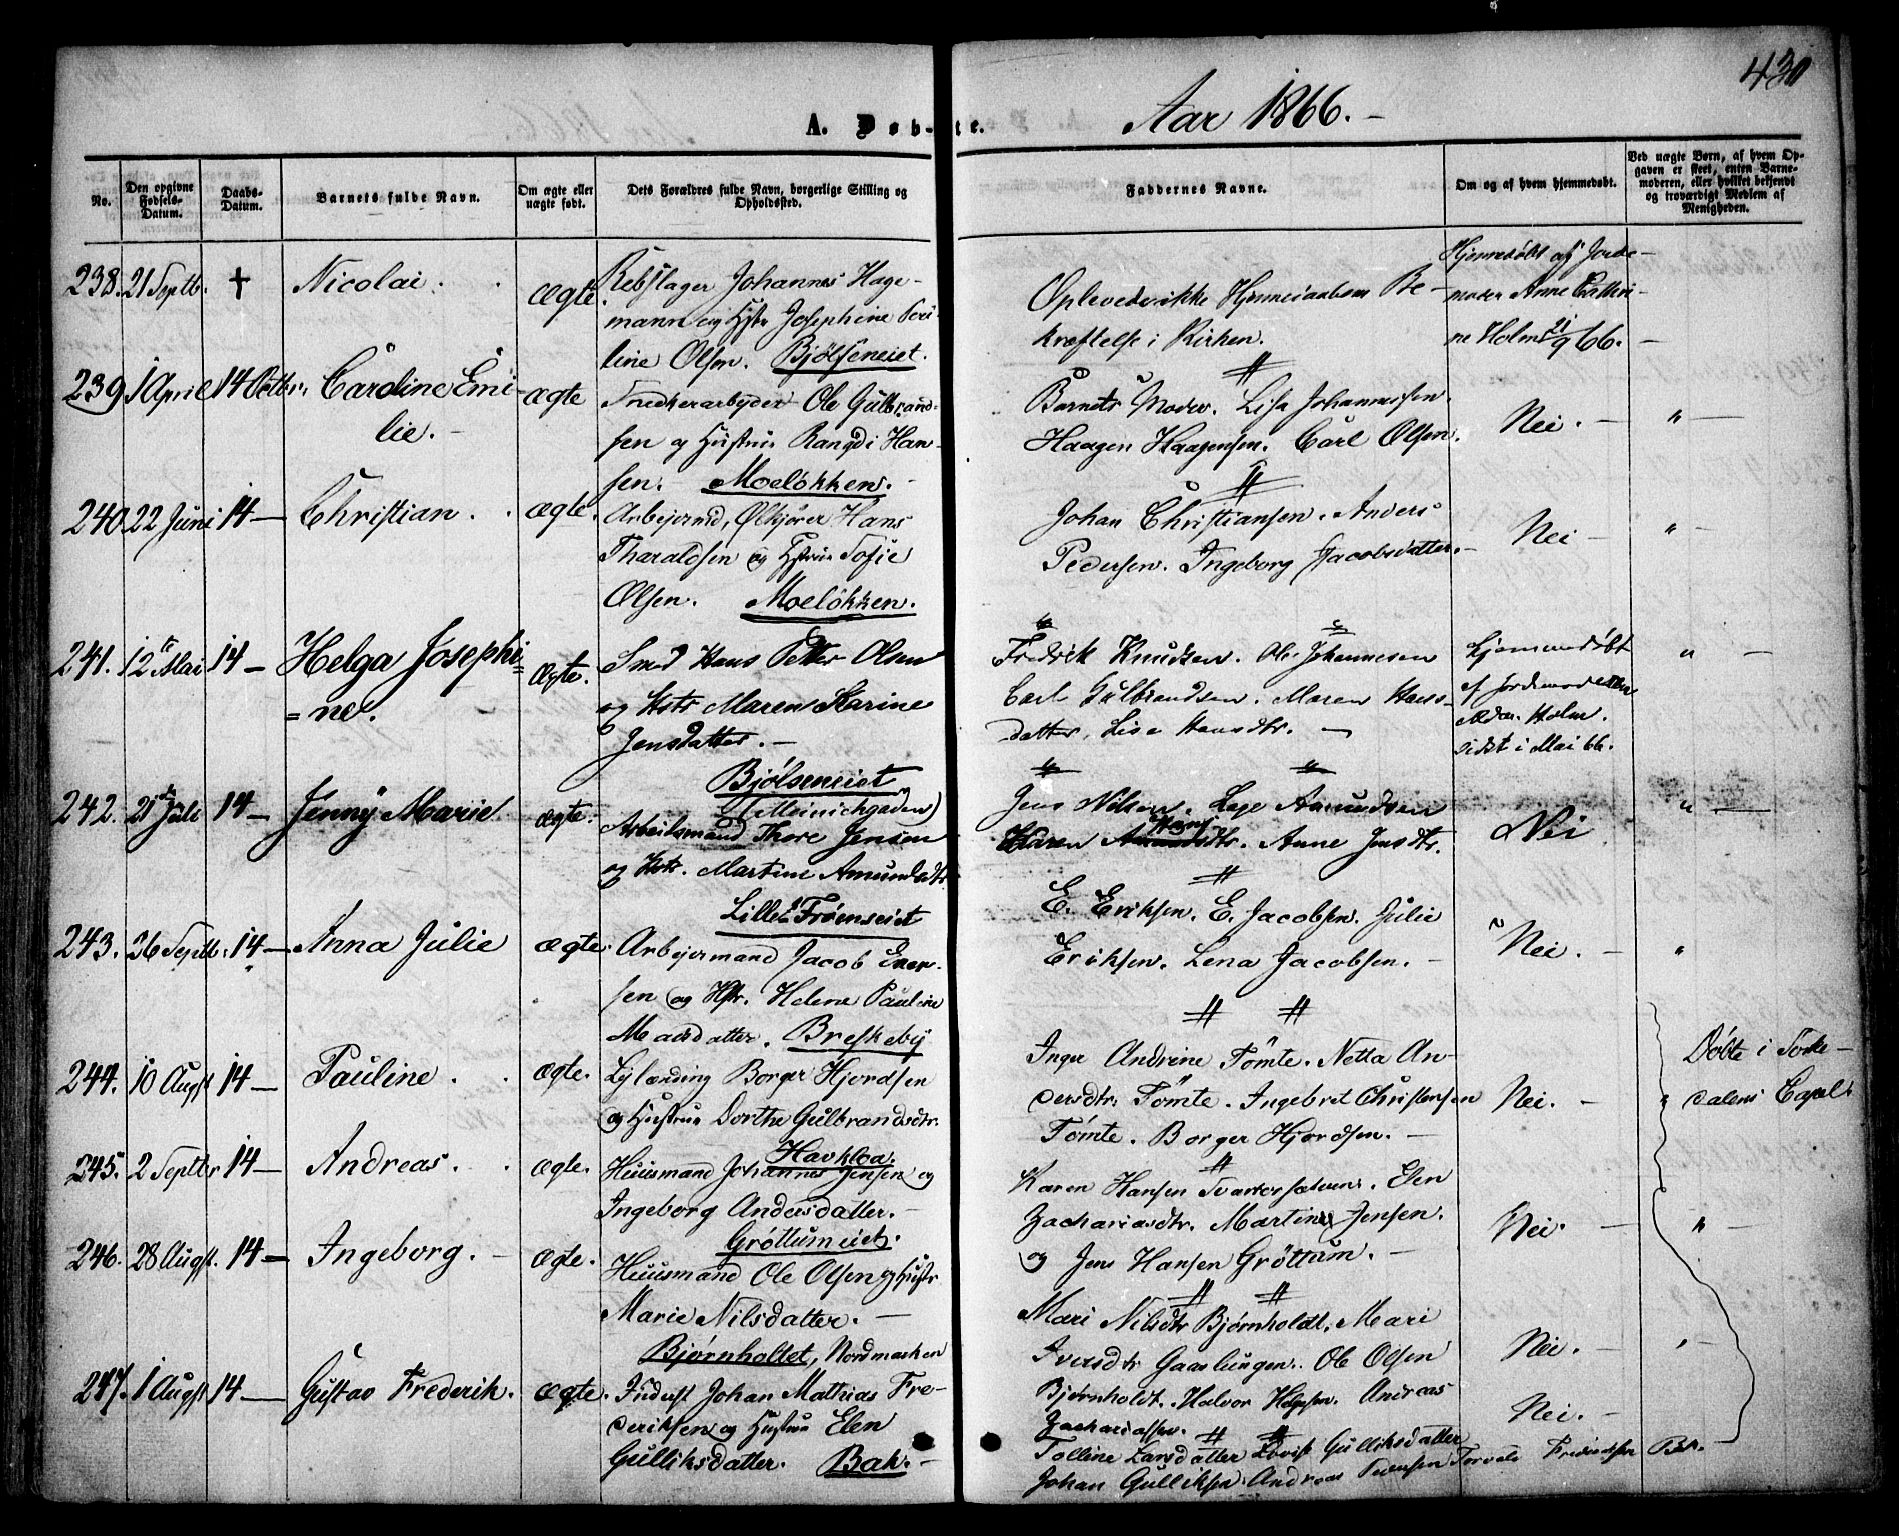 430
Aar 1866.
A. Døb-te.
No.
Den opgivne Fødsels-Datum.
Daabs-Datum.
Barnets fulde Navn.
Om ægte eller uægte født.
Dets Forældres fulde Navn, borgerlige Stilling og Opholdssted.
Faddernes Navne.
Om og af hvem hjemmedøbt.
Ved uægte Børn, af hvem Opgaven er skeet, enten Barnemoderen, eller hvilket bekjendt og troværdigt Medlem af Menigheden.
238. 21 Septb. † Nicolai. Ægte.
Rebslager Johannes Hage-
mann og Hstr Josephine
line Olsen. Bjølseneiet.
Oplevede ikke Be-
kræftelse i Kirken.
Hjemmedøbt af Jorde-
moder Anne Cathri-
ne Holm 21/9 66.
239 1 April 14 Octbr. Caroline Emi-
lie. Ægte
Snedkerarbeyder Ole Gulbrand-
sen og Hustru Rangdi Han-
sen. Moeløkken.
Barnets Moder. Lisa Johannessen.
Haagen Haagensen. Carl Olsen.
Nei. "
240. 22 Juni 14 - Christian. Ægte.
Arbejermd, Ølkjører Hans
Tharaldsen og Hstru Sofie
Olsen. Moeløkken.
Johan Christiansen. Anders
Pedersen. Ingeborg Jacobsdatter.
Nei "
241. 12te Mai 14 - Helga Josephi-
ne. Ægte.
Smed Hans Petter Olsen
og Hstr Maren Karine
Jensdatter. -
Bjølseneiet
Fredrik Knudsen. Ole Johannesen
Carl Gulbrandsen. Maren Hans-
datter, Lise Hansdtr.
Hjemmedøbt
af Jordemoder
Holm.
sidst i Mai 66.
"
242. 21 Juli 14 - Jenny Marie Ægte.
(Meinichgaden)
Arbeidsmand Thore Jensen
og Hstr. Martine Amundsdtr.
Lille Frøenseiet
Jens Nilsen. Lage Amundsen
Karen Hans dtr. Anne Jensdtr.
Nei "
243. 26 Septb. 14 - Anna Julie Ægte.
Arbejermand Jacob Ener-
sen og Hstr. Helene Pauline
Madsdatter. Breskeby
E. Eriksen. E. Jacobsen. Julie
Eriksen. Lena Jacobsen.
Nei. - "
244. 10 Augst 14 - Pauline. Ægte.
Lejlænding Borger Hjordsen
og Hustru Dorthe Gulbrandsdtr.
Havkloa.
Inger Andrine Tømte. Netta An-
dersdtr. Tømte. Ingebret Christensen
Tømte. Borger Hjordsen.
Nei. - "
Døbte i Sørke-
dalens Capel.
245. 2 Septbr 14 - Andreas. Ægte.
Huusmand Johannes Jensen og
Ingeborg Andersdatter.
Grøttumeiet.
Karen Hansen. Elen
Zachariasdtr. Martine Jensen.
og Jens Hansen Grøttum.
Nei. "
246. 28 Augst. 14 - Ingeborg. Ægte.
Huusmand Ole Olsen og Hustr
Marie Nilsdatter.
Bjørnholtet, Nordmarken
Mari Nilsdtr Bjørnholdt, Mari
Iversdtr Gaaslungen. Ole Olsen
Bjørnholdt. Halvor Helgesen. Andreas
Zachariassen.
Nei. "
247. 1 Augst 14 - Gustav Frederik. Ægte.
Inderst Johan Mathias Fre-
deriksen og Hustru Elen
Gulliksdatter. Bak.
Tolline Larsdatter Lovise Gulliksdatter
Johan Gulliksen. Andreas Pedersen Torvald Fredriksen Bak.
Nei.